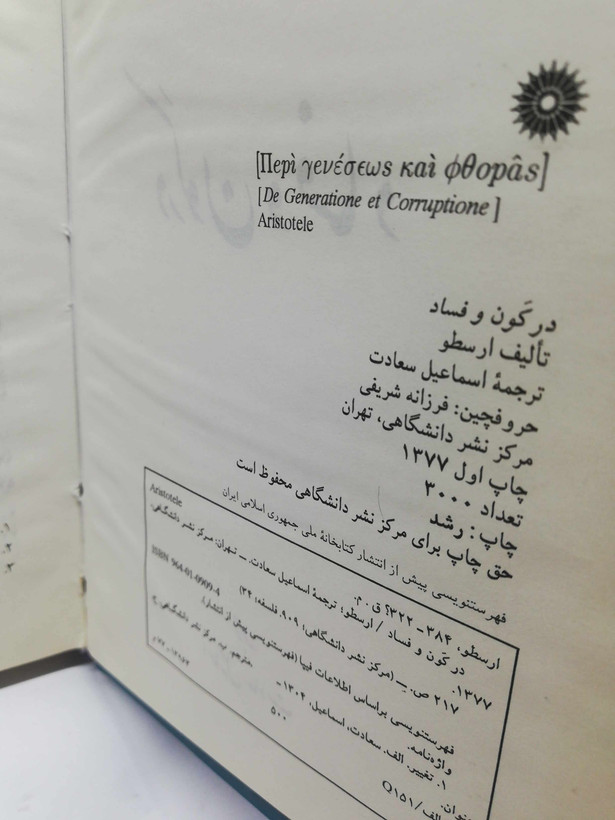 [Περὶ γενέσεως καὶ φθορᾶς]
[De Generatione et Corruptione]
Aristotele
در کَون و فساد
تألیف ارسطو
ترجمهٔ اسماعیل سعادت
حروفچین: فرزانه شریفی
مرکز نشر دانشگاهی، تهران
چاپ اول ۱۳۷۷
تعداد ۳۰۰۰
چاپ: رشد
حق چاپ برای مرکز نشر دانشگاهی محفوظ است
فهرستنویسی پیش از انتشار کتابخانهٔ ملی جمهوری اسلامی ایران
Aristotele
ارسطو، ۳۸۴ - ۳۲۲؟ ق. م.
در کَون و فساد / ارسطو؛ ترجمهٔ اسماعیل سعادت. ـ تهران: مرکز نشر دانشگاهی،
۱۳۷۷.
۲۱۷ ص. ـ (مرکز نشر دانشگاهی؛ ۹۰۹. فلسفه؛ ۳۴)
ISBN 964-01-0909-4
فهرستنویسی براساس اطلاعات فیپا (فهرستنویسی پیش از انتشار).
واژه‌نامه.
۱. تغییر. الف. سعادت، اسماعیل، ۱۳۰۴ -
مترجم. ب. مرکز نشر دانشگاهی. ج
عنوان.
۵۰۰
الف/Q۱۵۱